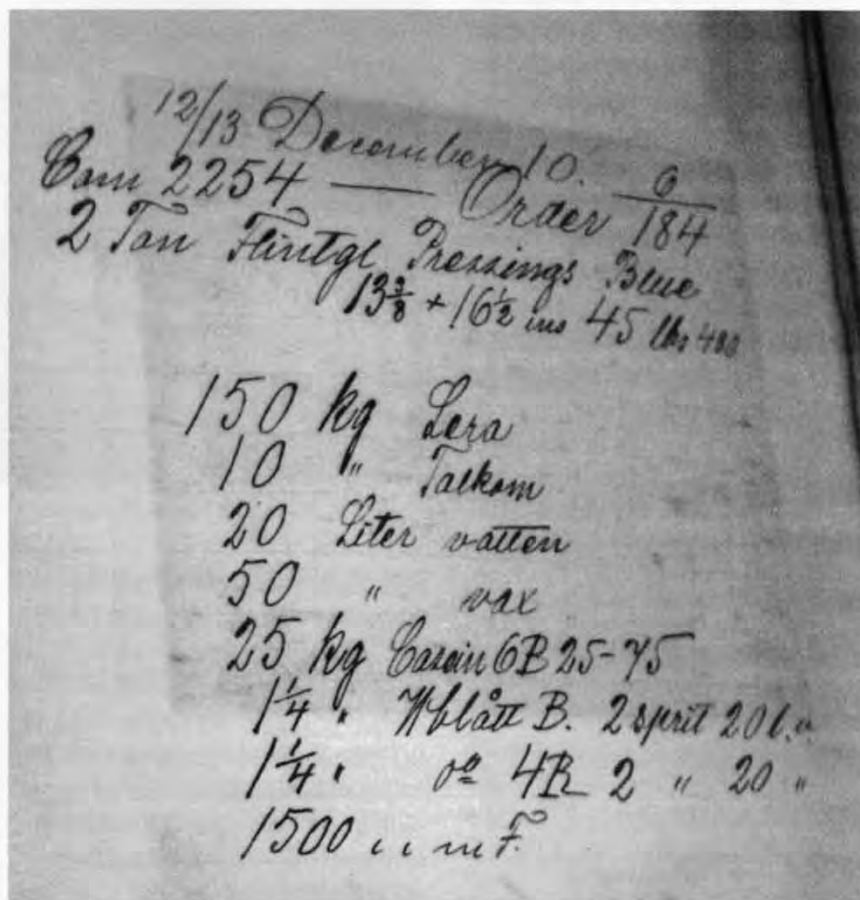 12/13 December 10. 6
Com 2254 — Order 184
2 Ton Flintgl Pressings Blue
13 3/8 + 16 1/2 ins 45 lbs 480
150 kg Lera
10 " Talkum
20 Liter vatten
50 " vax
25 kg Casein 6B 25-75
1 1/4 " Wblått B. 2 sprit 20 l. v.
1 1/4 " do 4R 2 " 20 "
1500